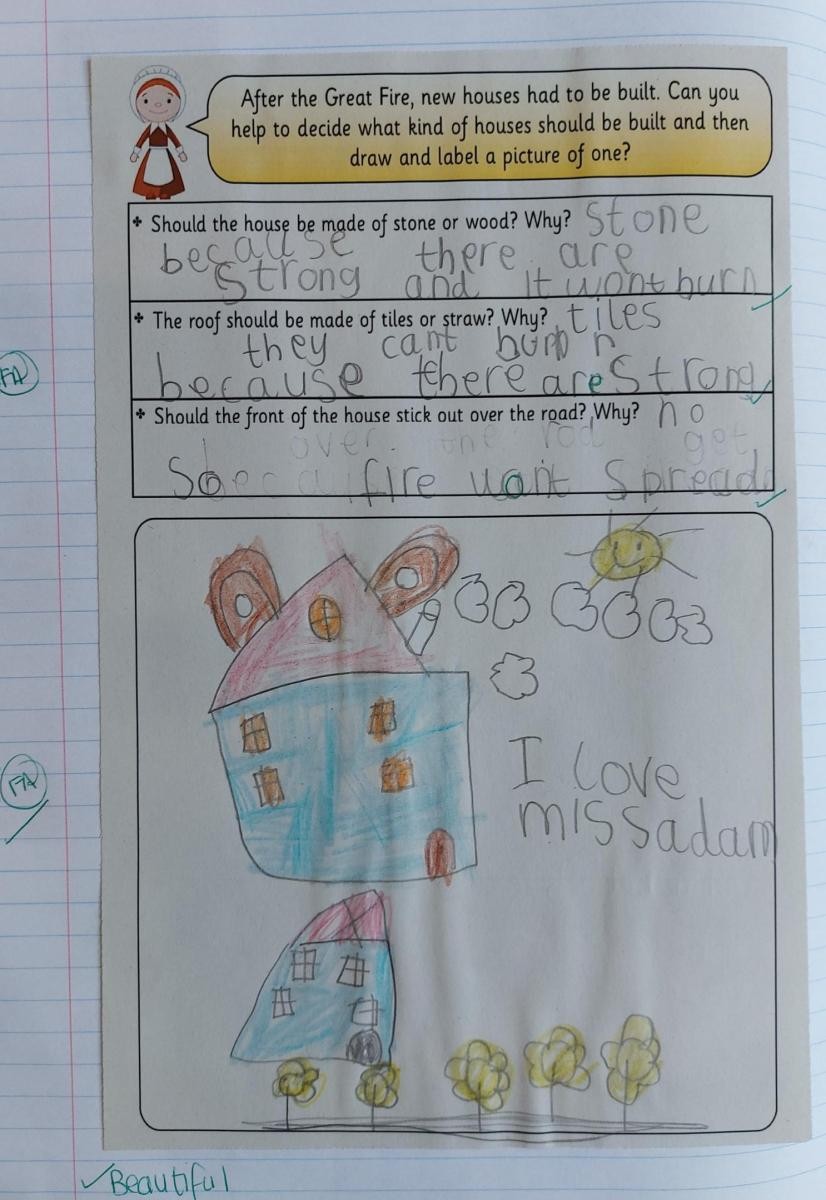 After the Great Fire, new houses had to be built. Can you
help to decide what kind of houses should be built and then
draw and label a picture of one?
Should the house be made of stone or wood? Why? stone
because there are
strong and it wont burn
The roof should be made of tiles or straw? Why? tiles
they cant burn
because there are strong
Should the front of the house stick out over the road? Why? no
over the rod get
So fire wont spread
FA
I love
missadam
FA
Beautiful